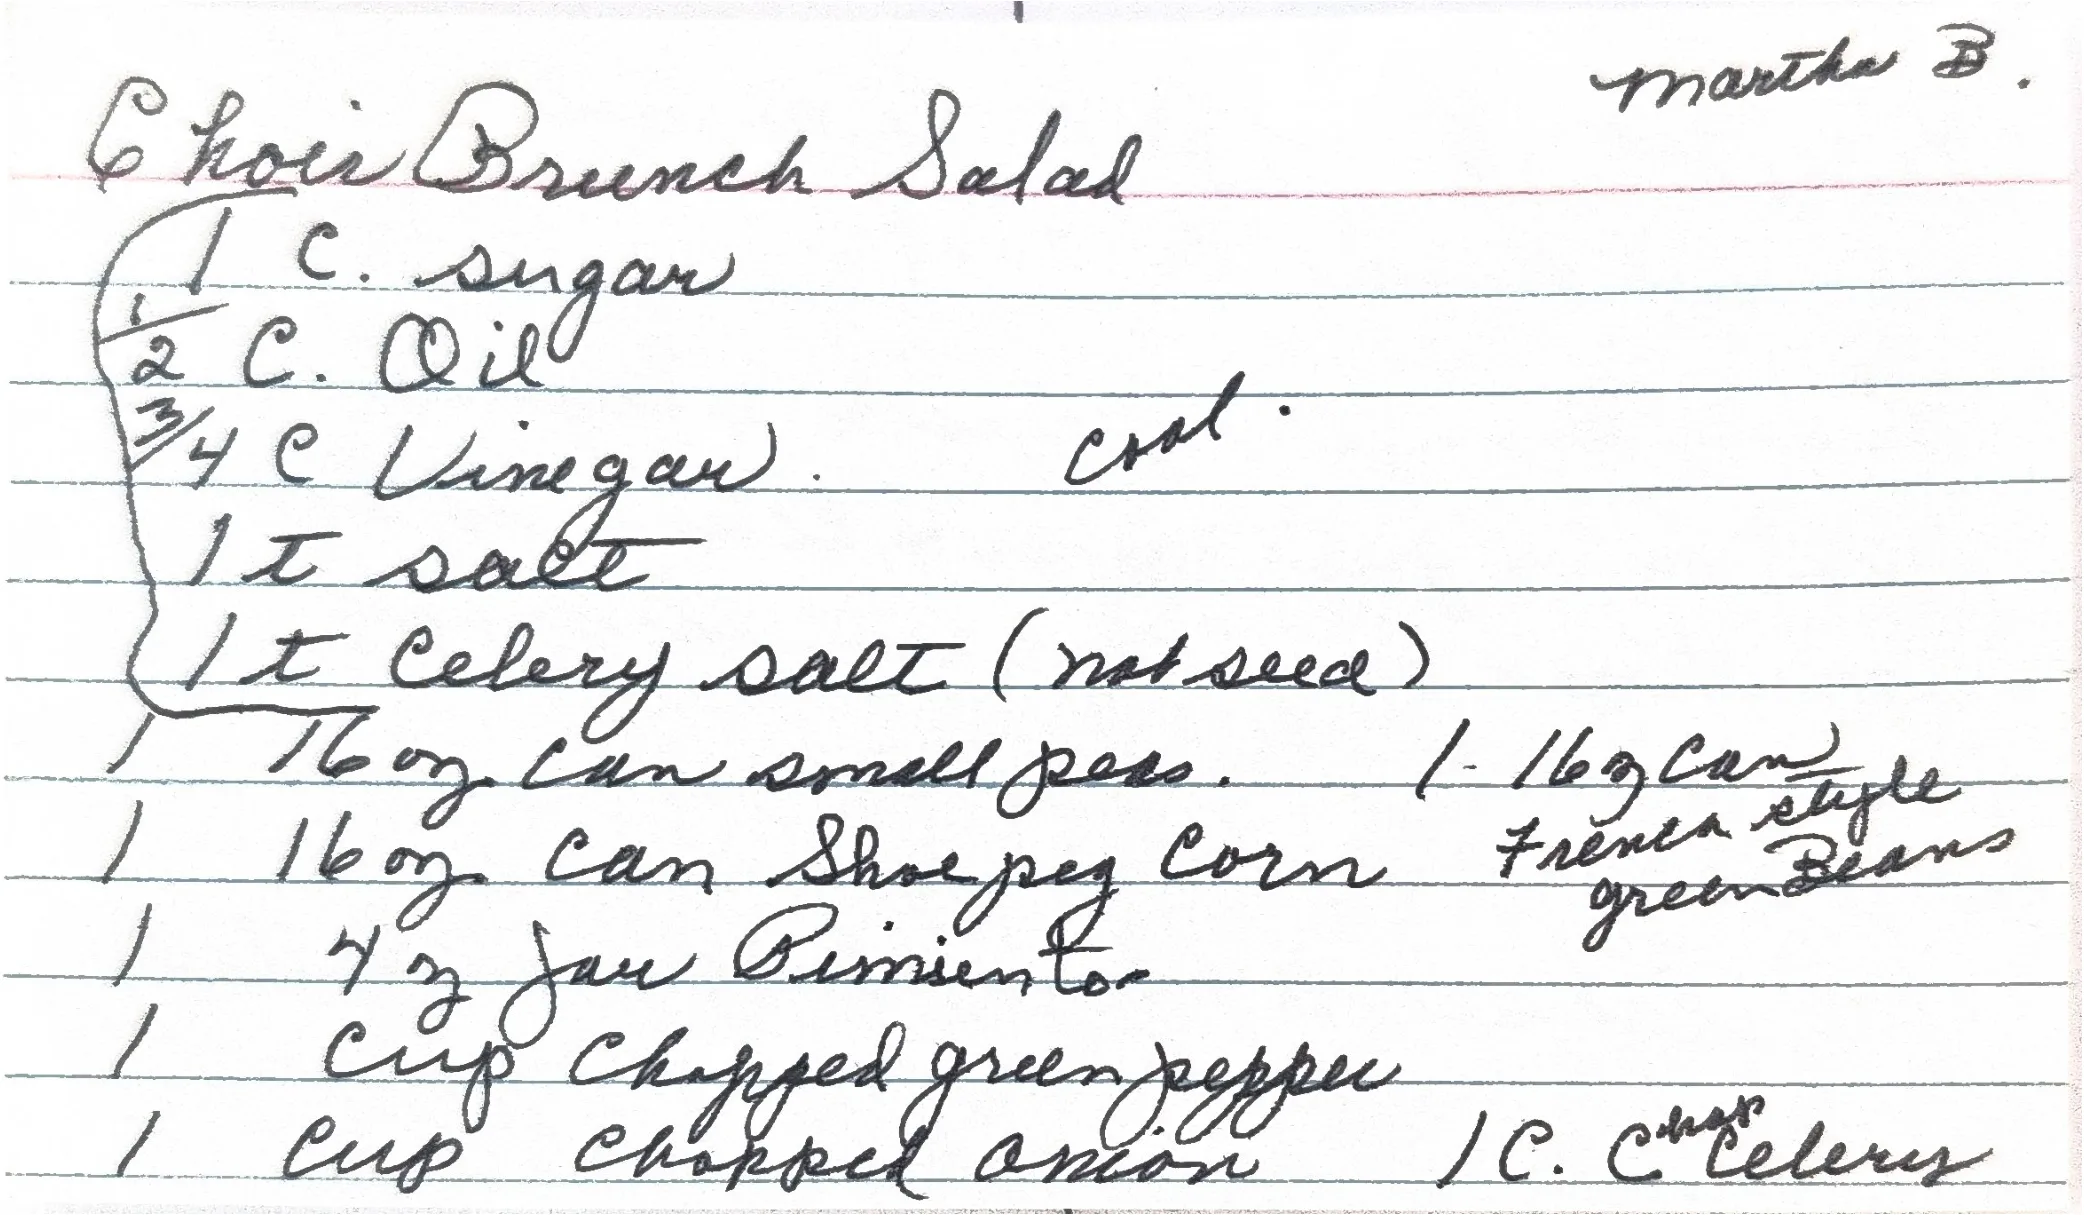 Martha B.
Choir Brunch Salad
1 C. sugar
1/2 C. Oil
3/4 C Vinegar. Cool.
1 t salt
1 t Celery salt (not seed)
1 16 oz. can small peas. 1 - 16 oz Can
French style
green Beans
1 16 oz. can Shoepeg Corn
1 4 oz jar Pimiento
1 cup chopped green pepper
1 cup chopped onion 1 C. Chop Celery